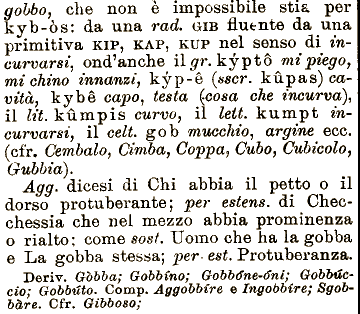 gobbo, che non è impossibile stia per
kyb-òs: da una rad. GIB fluente da una
primitiva KIP, KAP, KUP nel senso di in-
curvarsi, ond'anche il gr. kýptô mi piego,
mi chino innanzi, kýp-ê (sscr. kûpas) ca-
vità, kybê capo, testa (cosa che incurva),
il lit. kûmpis curvo, il lett. kumpt in-
curvarsi, il celt. gob mucchio, argine ecc.
(cfr. Cembalo, Cimba, Coppa, Cubo, Cubicolo,
Gubbia).
Agg. dicesi di Chi abbia il petto o il
dorso protuberante; per estens. di Chec-
chessia che nel mezzo abbia prominenza
o rialto: come sost. Uomo che ha la gobba
e La gobba stessa; per est. Protuberanza.
Deriv. Gòbba; Gobbíno; Gobbóne-óni; Gobbúc-
cio; Gobbúto. Comp. Aggobbíre e Ingobbíre; Sgob-
bàre. Cfr. Gibboso;